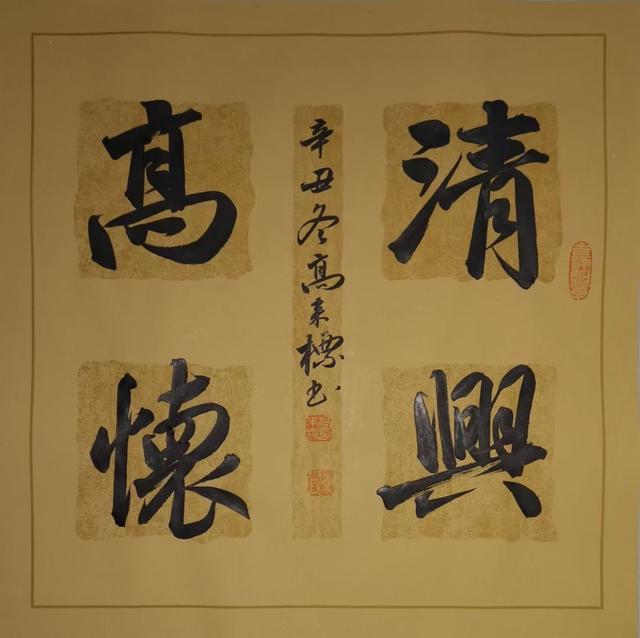 清興
高懷
辛丑冬高来標书